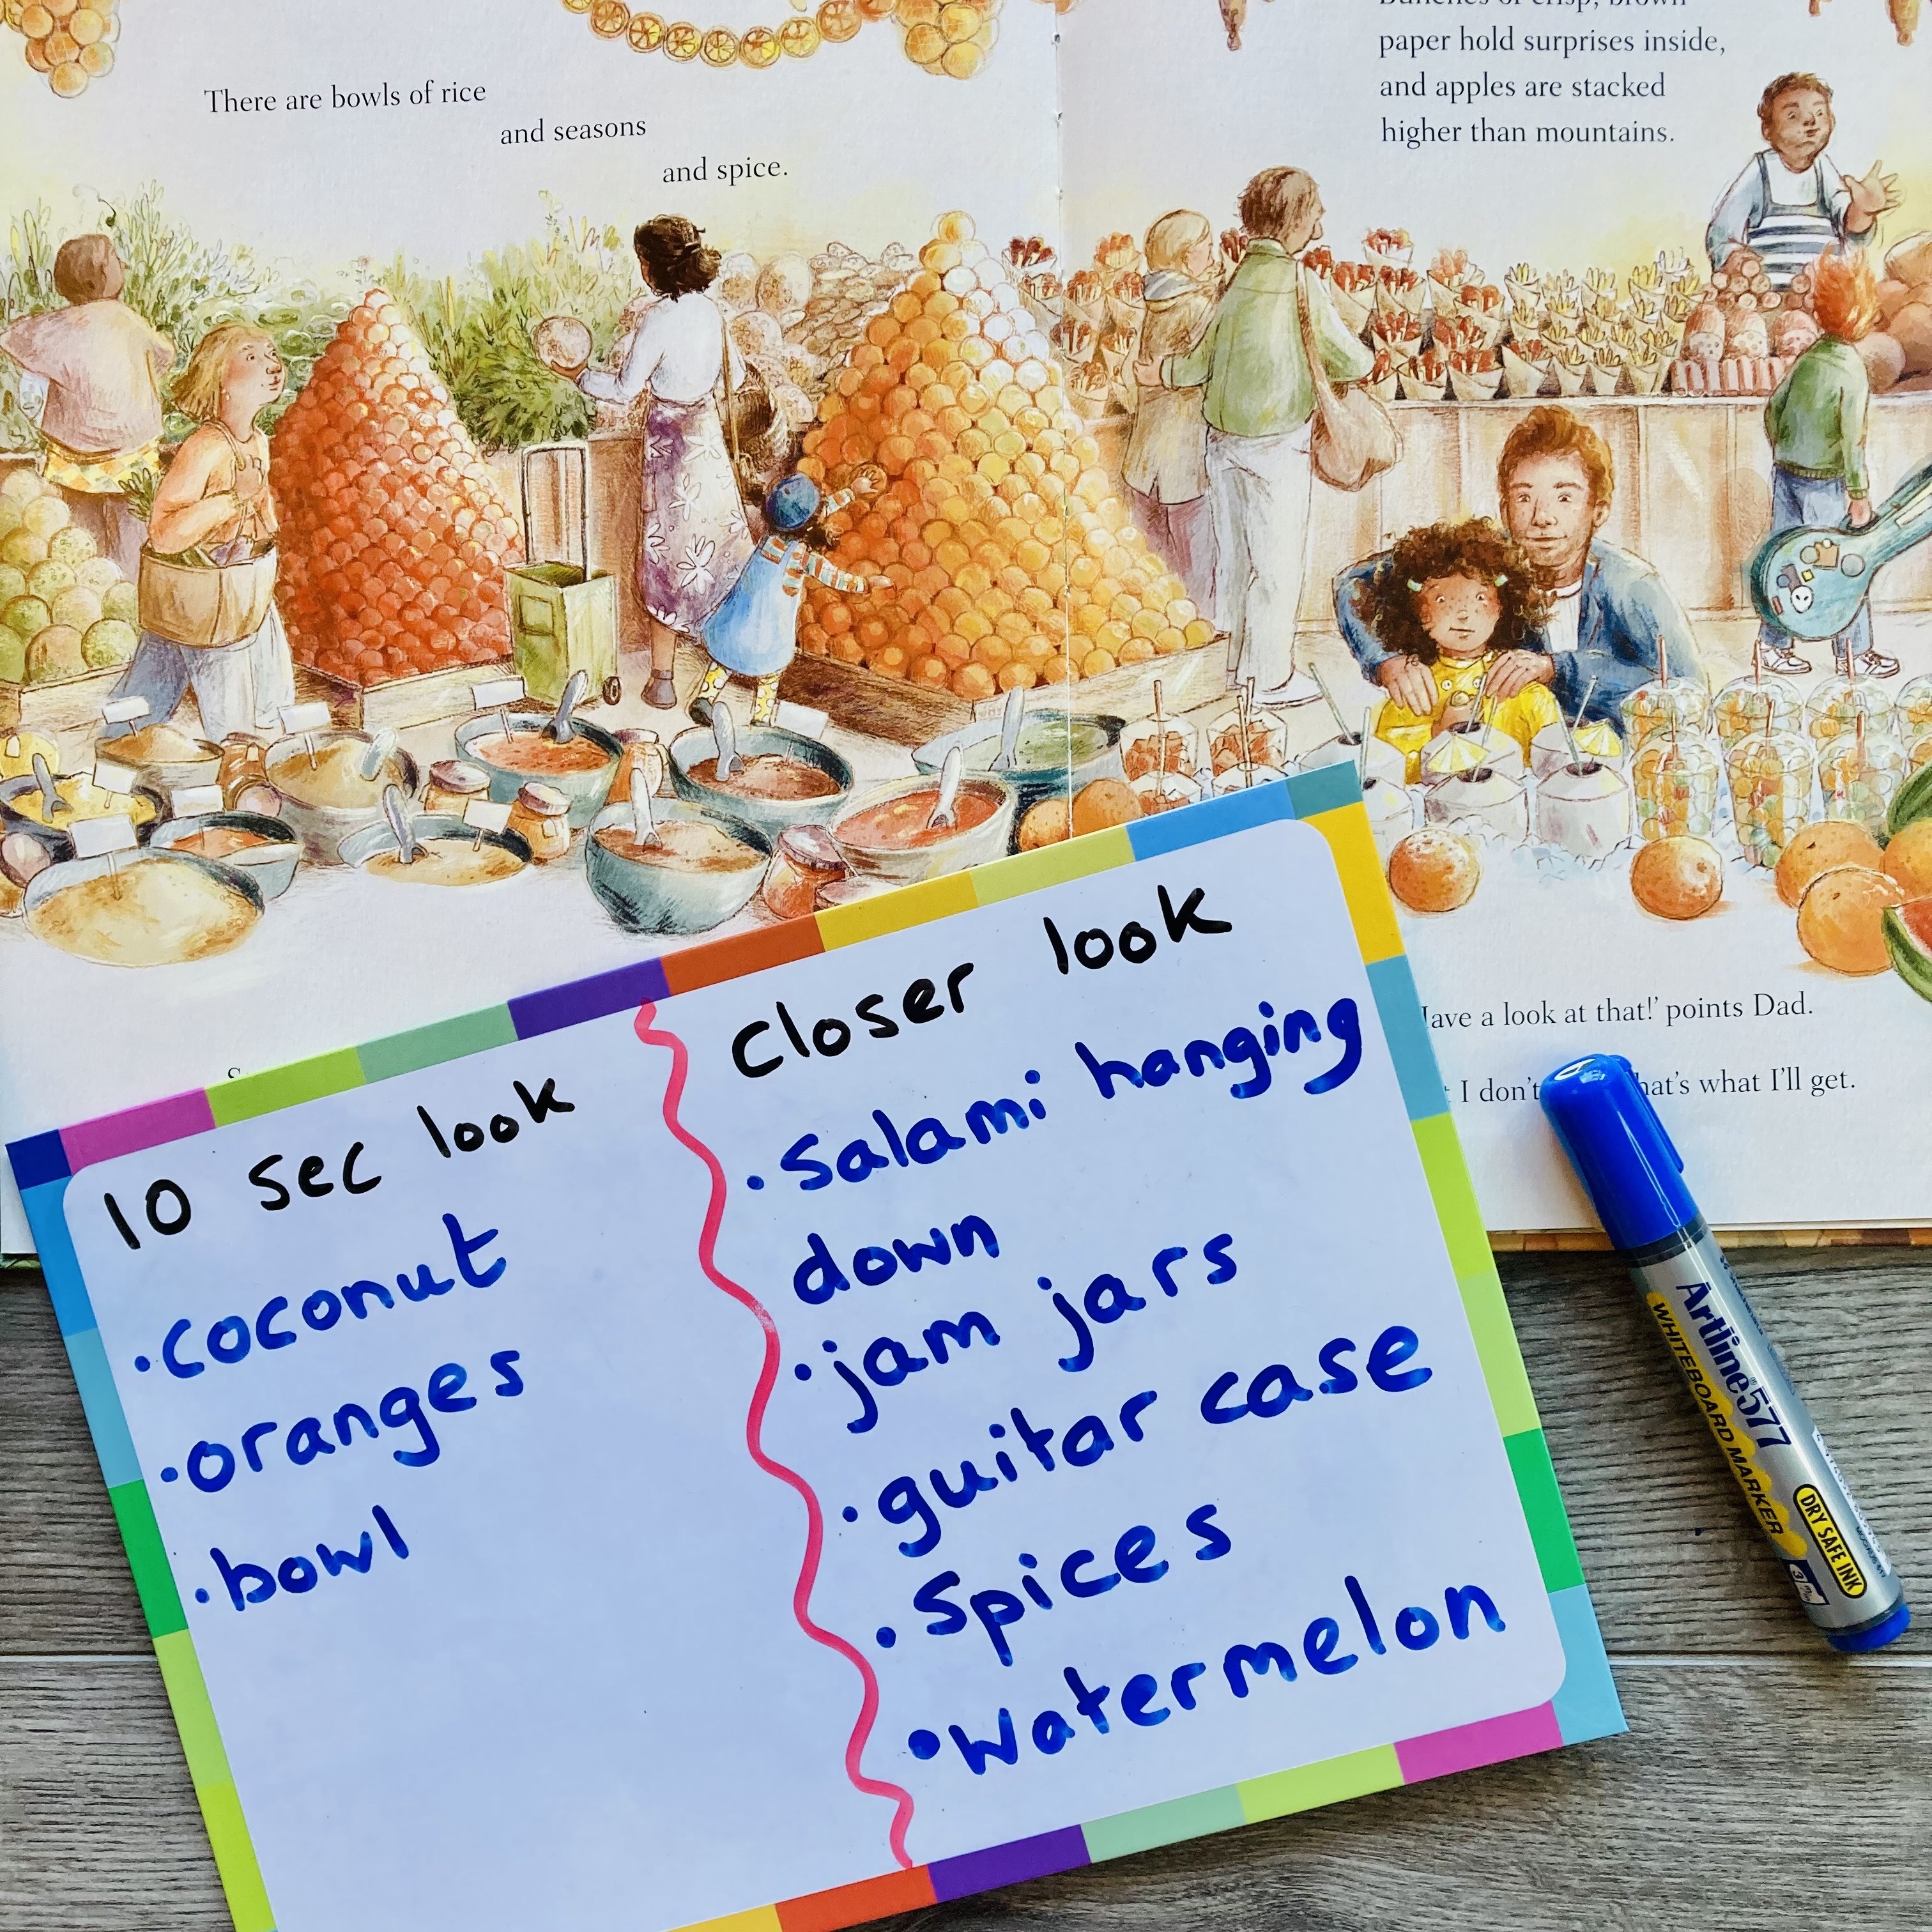 There are bowls of rice
and seasons
and spice.
paper hold surprises inside,
and apples are stacked
higher than mountains.
ave a look at that!' points Dad.
I don't hat's what I'll get.
10 sec look
·coconut
·oranges
·bowl
Closer look
·Salami hanging
down
·jam jars
·guitar case
·Spices
·Watermelon
Artline 577
WHITEBOARD MARKER
DRY SAFE INK